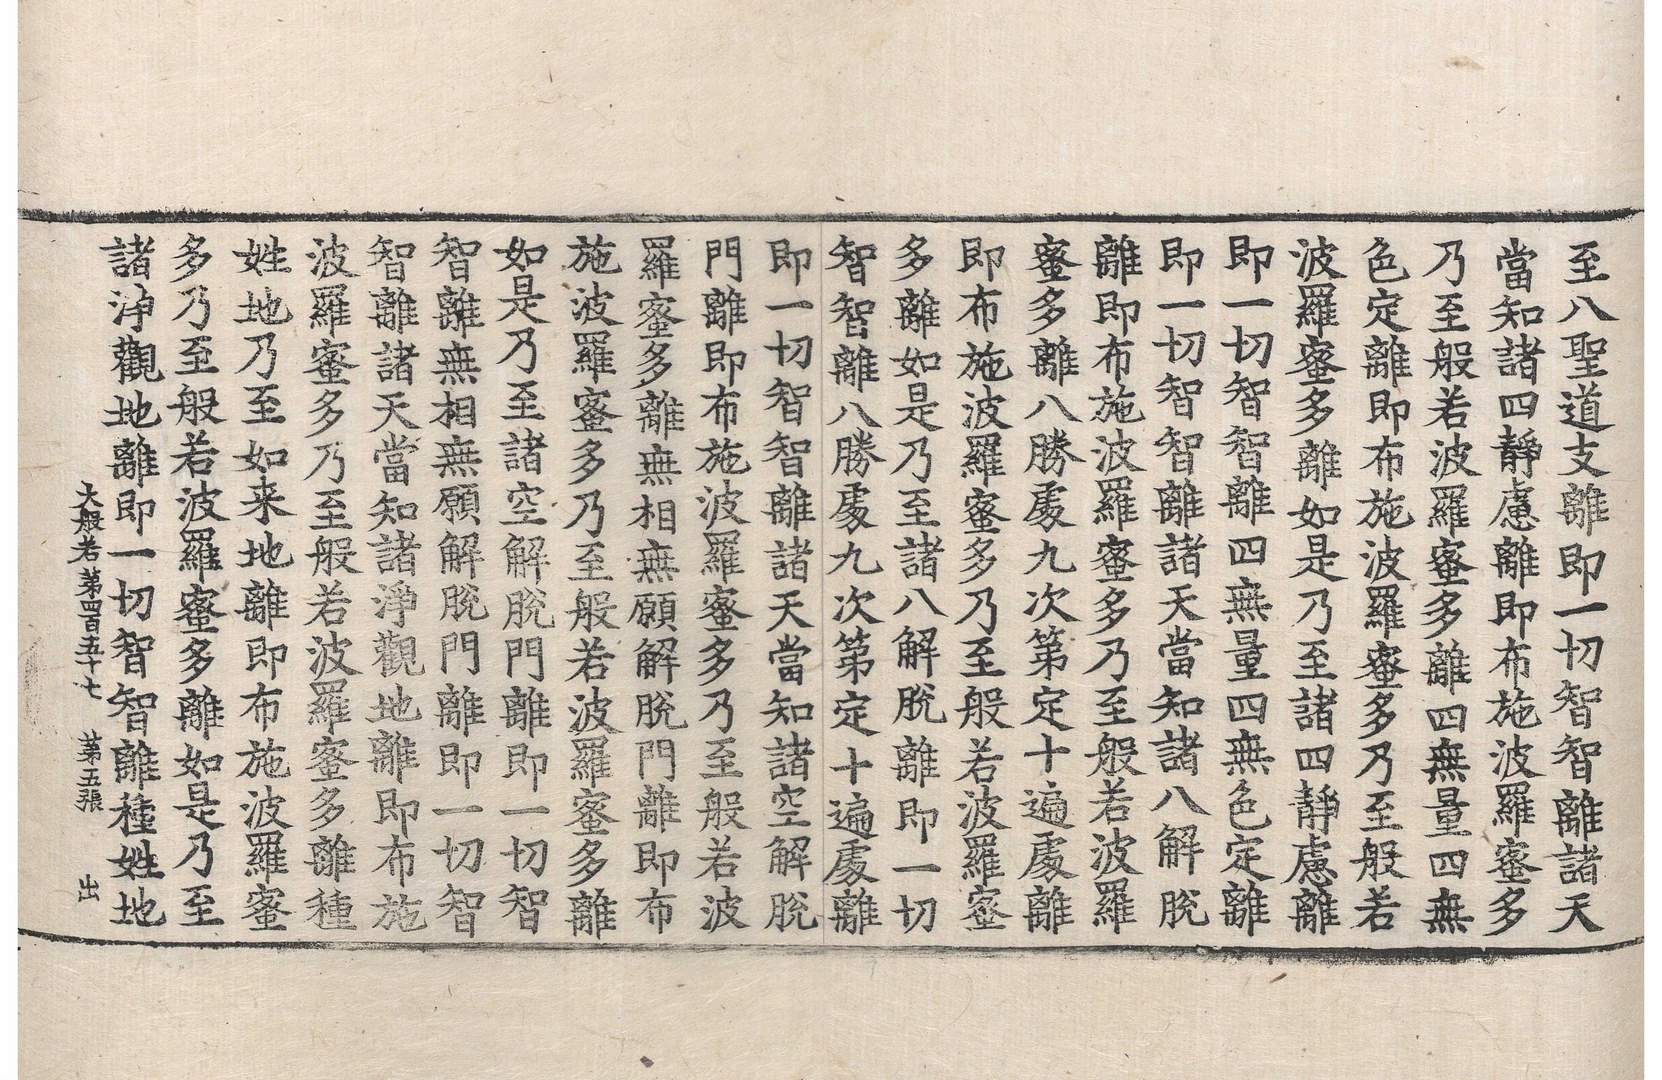 至八聖道支離即一切智智離諸天
當知諸四靜慮離即布施波羅蜜多
乃至般若波羅蜜多離四無量四無
色定離即布施波羅蜜多乃至般若
波羅蜜多離如是乃至諸四靜慮離
即一切智智離四無量四無色定離
即一切智智離諸天當知諸八解脫
離即布施波羅蜜多乃至般若波羅
蜜多離八勝處九次第定十遍處離
即布施波羅蜜多乃至般若波羅蜜
多離如是乃至諸八解脫離即一切
智智離八勝處九次第定十遍處離
即一切智智離諸天當知諸空解脫
門離即布施波羅蜜多乃至般若波
羅蜜多離無相無願解脫門離即布
施波羅蜜多乃至般若波羅蜜多離
如是乃至諸空解脫門離即一切智
智離無相無願解脫門離即一切智
智離諸天當知諸淨觀地離即布施
波羅蜜多乃至般若波羅蜜多離種
姓地乃至如来地離即布施波羅蜜
多乃至般若波羅蜜多離如是乃至
諸淨觀地離即一切智智離種姓地
大般若第四百五十七 第五張 出